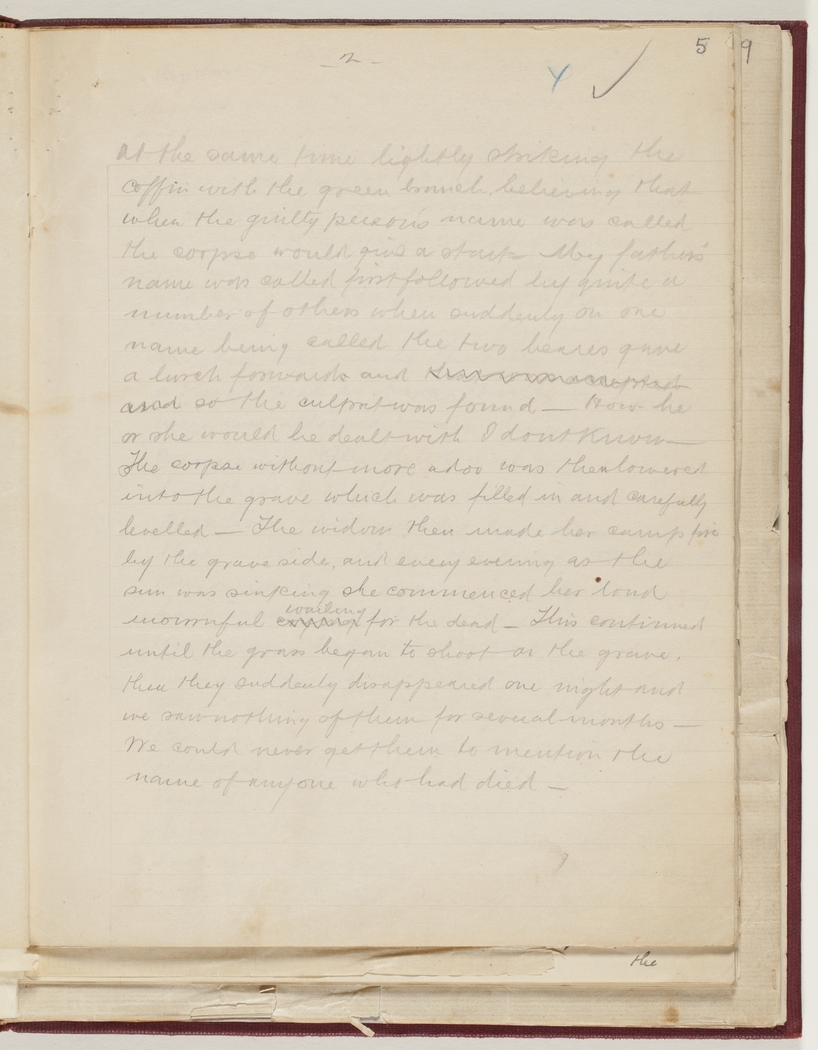 - 2 -
5 9
at the same time lightly striking the
coffin with the green branch, believing that
when the guilty person's name was called
the corpse would give a start My father's
name was called first followed by quite a
number of others when suddenly on one
name being called the two beares gave
a lurch forwards and
and so the culprit was found — How he
or she would be dealt with I dont know —
The corpse without more adoo was then lowered
into the grave which was filled in and carefully
levelled — The widow then made her camp fire
by the grave side, and every evening as the
sun was sinking she commenced her loud
wailing
mournful for the dead — This continued
until the grass began to shoot on the grave,
then they suddenly disappeared one night and
we saw nothing of them for several months —
We could never get them to mention the
name of anyone who had died —
the